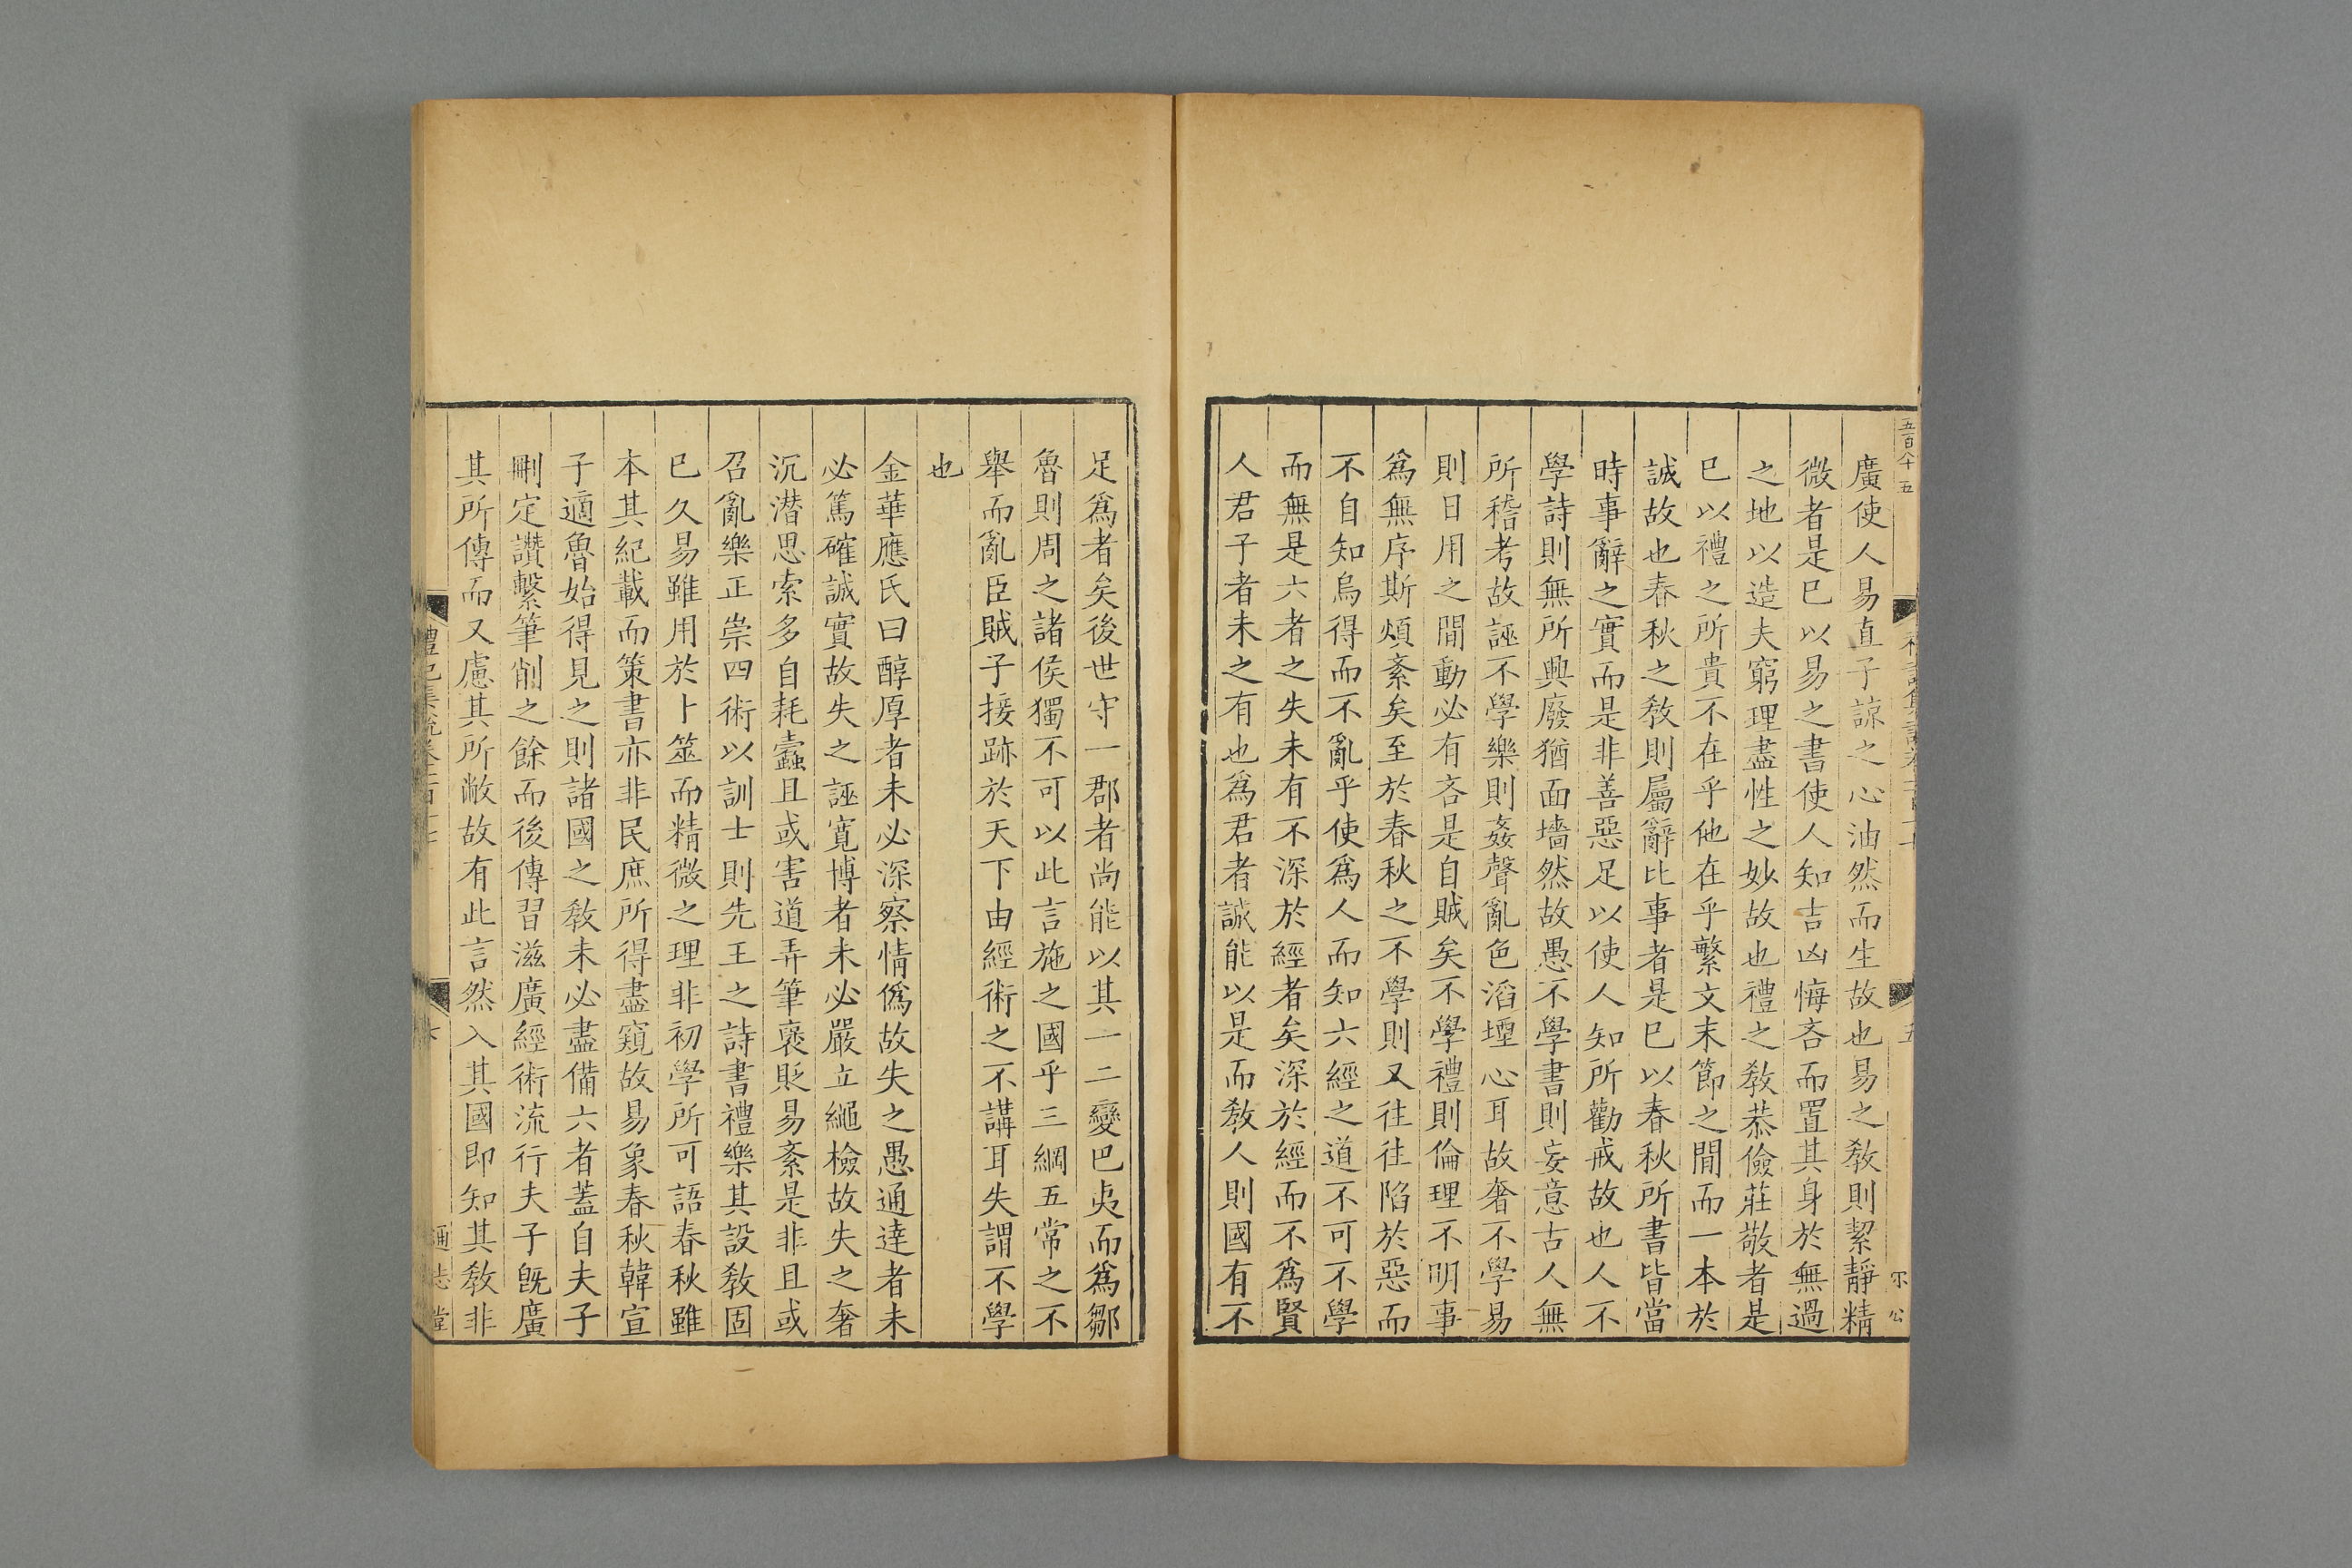 五百八十五
廣使人易直子諒之心油然而生故也易之敎則絜靜精
微者是巳以易之書使人知吉凶悔吝而置其身於無過
之地以造夫窮理盡性之妙故也禮之敎恭儉莊敬者是
巳以禮之所貴不在乎他在乎繁文末節之閒而一本於
誠故也春秋之敎則屬辭比事者是巳以春秋所書皆當
時事辭之實而是非善惡足以使人知所勸戒故也人不
學詩則無所興廢猶面墻然故愚不學書則妄意古人無
所稽考故誣不學樂則姦聲亂色滔堙心耳故奢不學易
則日用之閒動必有吝是自賊矣不學禮則倫理不明事
爲無序斯煩紊矣至於春秋之不學則又往往陷於惡而
不自知烏得而不亂乎使爲人而知六經之道不可不學
而無是六者之失未有不深於經者矣深於經而不爲賢
人君子者未之有也爲君者誠能以是而敎人則國有不
足爲者矣後世守一郡者尚能以其一二變巴夷而爲鄒
魯則周之諸侯獨不可以此言施之國乎三綱五常之不
舉而亂臣賊子接跡於天下由經術之不講耳失謂不學
也
金華應氏曰醇厚者未必深察情僞故失之愚通達者未
必篤確誠實故失之誣寬博者未必嚴立繩檢故失之奢
沉潛思索多自耗蠹且或害道弄筆褒貶易紊是非且或
召亂樂正崇四術以訓士則先王之詩書禮樂其設敎固
巳久易雖用於卜筮而精微之理非初學所可語春秋雖
本其紀載而策書亦非民庶所得盡窺故易象春秋韓宣
子適魯始得見之則諸國之敎未必盡備六者蓋自夫子
刪定讚繫筆削之餘而後傳習滋廣經術流行夫子旣廣
其所傳而又慮其所敝故有此言然入其國卽知其敎非
禮記集說卷 六
通志堂